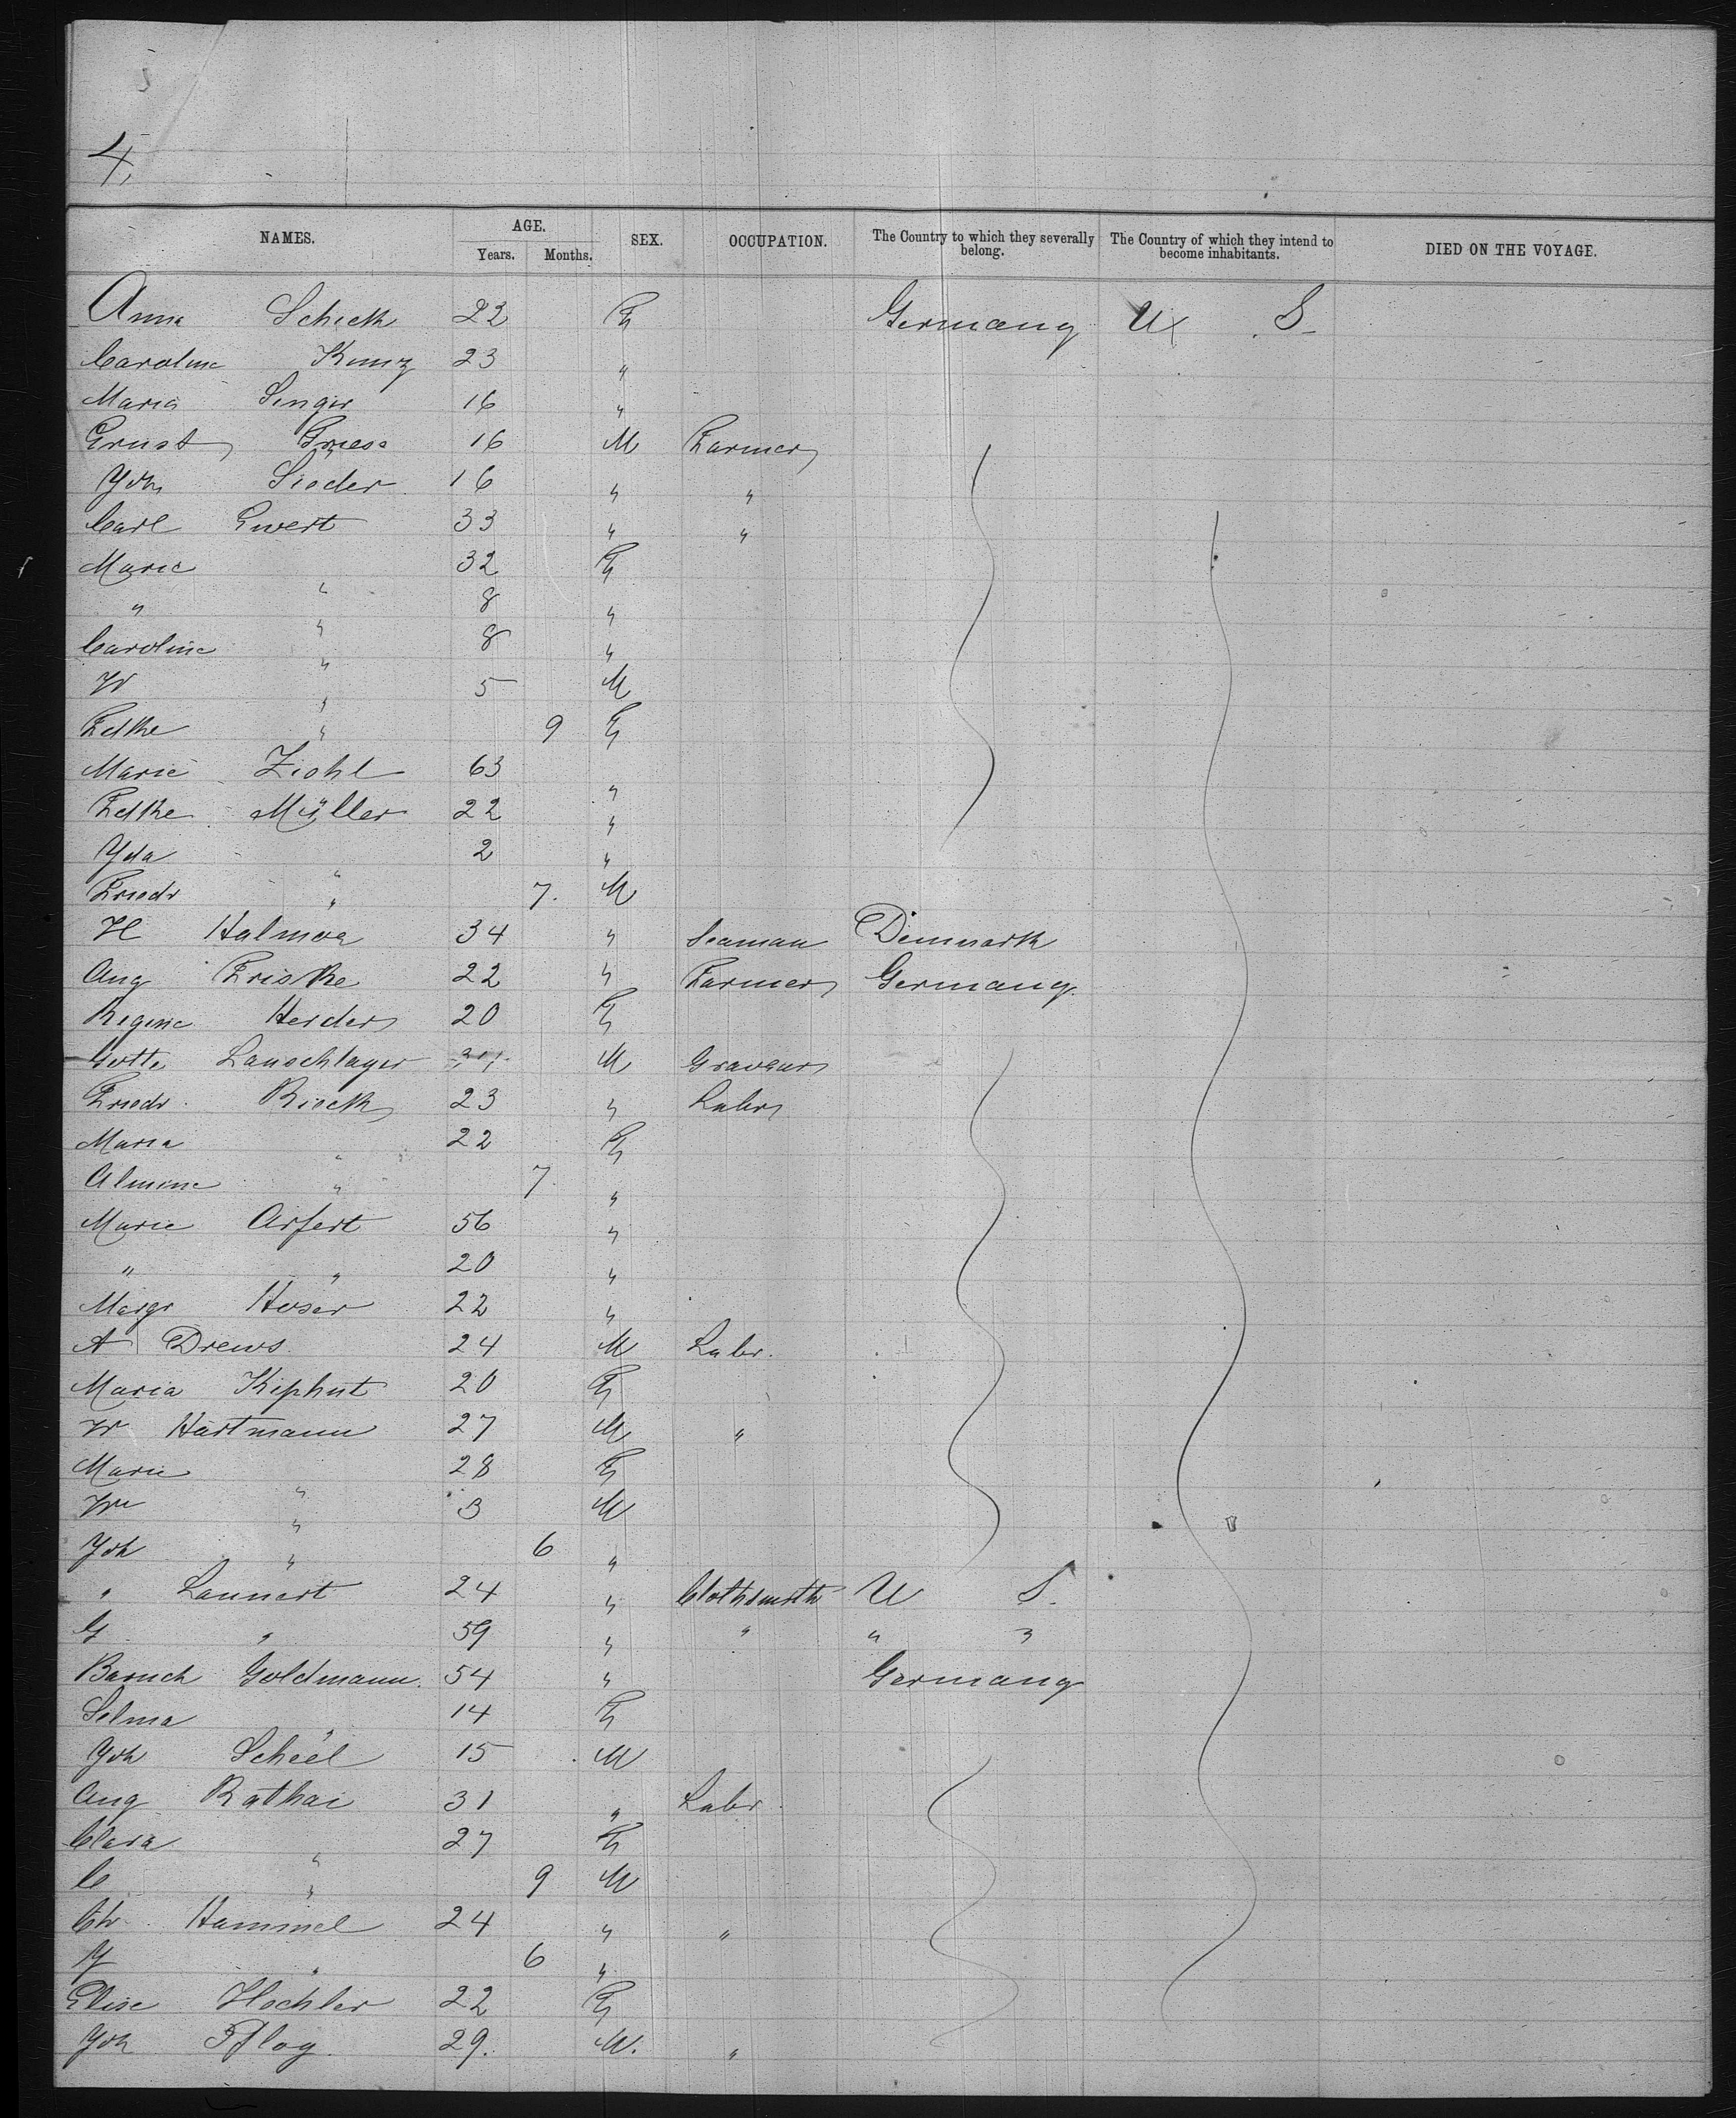 4,
NAMES. AGE. Years. Months. SEX. OCCUPATION. The Country to which they severally belong. The Country of which they intend to become inhabitants. DIED ON THE VOYAGE.
Anna Schick 22 F Germany U S
Caroline Kunz 23 "
Maria Singer 16 "
Ernst Griess 16 M Farmer
Joh Sieder 16 " "
Carl Ewert 33 " "
Marie " 32 F
" " 8 "
Caroline " 8 "
W " 5 M
Fdke " 9 F
Marie Ziehl 63 "
Fdke Müller 22 "
Ida " 2 "
Friedr " 7. M
H Halmoe 34 " Seaman Denmark
Aug Friske 22 " Farmer Germany.
Regine Herder 20 F
Gotte Lauschlager M Graveur
Friedr. Rieck 23 " Labr
Maria " 22 F
Almine " 7. "
Marie Arfert 56 "
" " 20 "
Margr Hoser 22 "
A Drews. 24 M Labr.
Maria Kiphut 20 F
W Hartmann 27 M "
Marie " 28 F
Wm " 3 M
Joh " 6 "
" Lannert 24 " Clothsmith U S.
G " 59 " " " "
Baruch Goldmann. 54 " Germany
Selma " 14 F
Joh Scheel 15 M
Aug Rathai 31 " Labr.
Clara " 27 F
C " 9 M
Chr. Hammel 24 " "
J " 6 "
Elise Hochler 22 F
Joh Pflog. 29. M. "